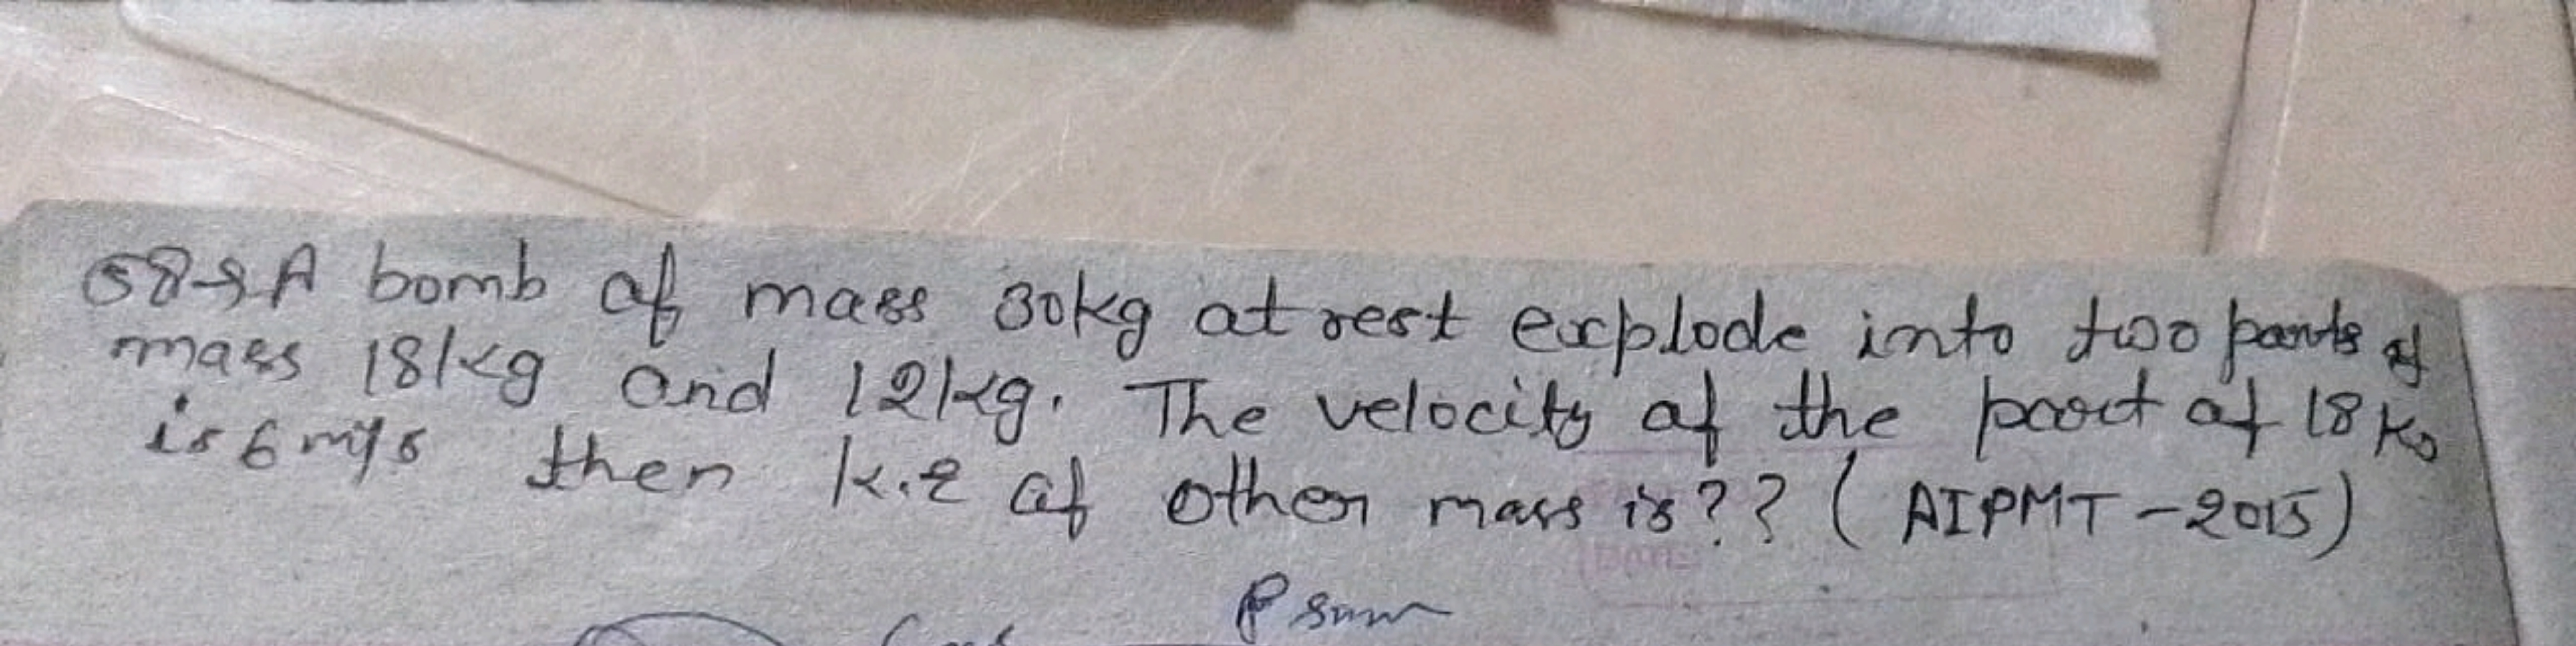 58→ A bomb of mass 30kg at rest explode into two parts of
mass 18kg and 12kg. The velocity of the part of 18 kg
is 6 m/s then k.e of other mass is?? ( AIPMT - 2015)
P